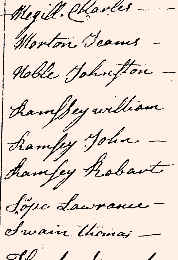 Megill. Charles —
Morton Jeams —
Noble Johnston —
Ramssey william
Ramsey John —
Ramsey Robart
Sopa Lawrance —
Swain thomas —